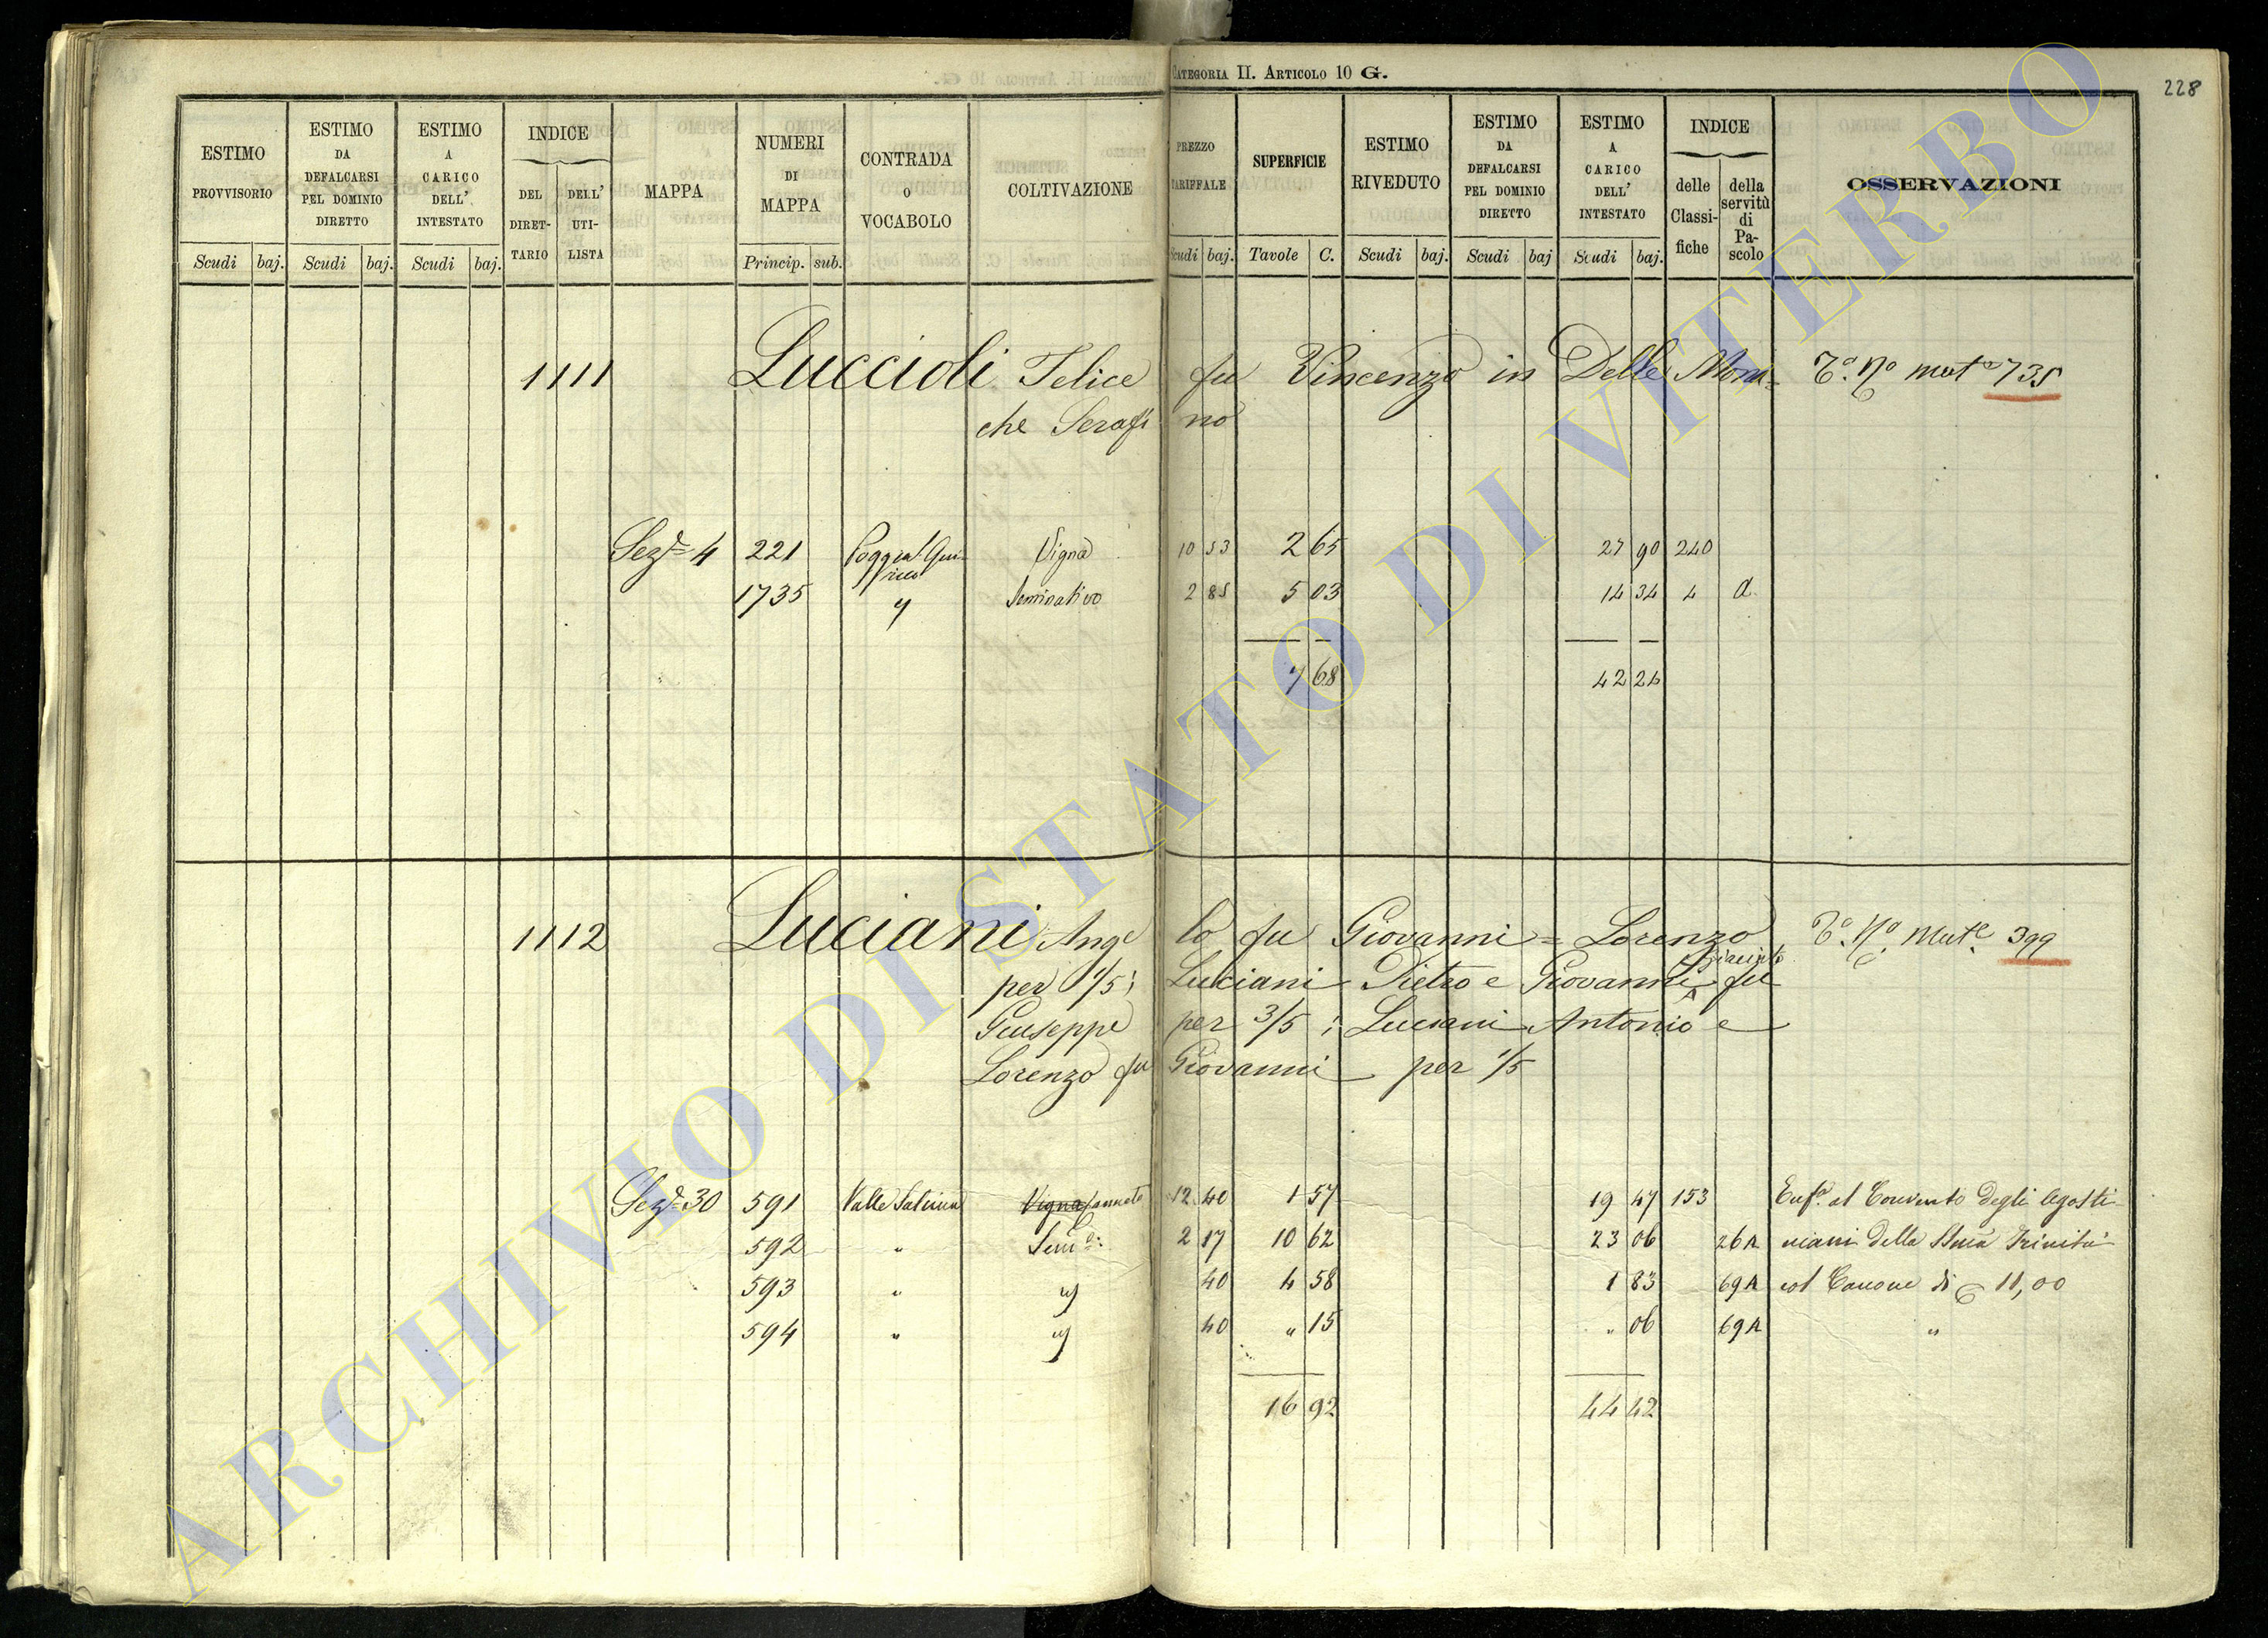 CATEGORIA II. ARTICOLO 10 G.
228
ESTIMO PROVVISORIO
Scudi baj.
ESTIMO DA DEFALCARSI PEL DOMINIO DIRETTO
Scudi baj.
ESTIMO A CARICO DELL' INTESTATO
Scudi baj.
INDICE
DEL DIRET-TARIO
DELL' UTI-LISTA
MAPPA
NUMERI DI MAPPA
Princip. sub.
CONTRADA O VOCABOLO
COLTIVAZIONE
PREZZO TARIFFALE
Scudi baj.
SUPERFICIE
Tavole C.
ESTIMO RIVEDUTO
Scudi baj.
ESTIMO DA DEFALCARSI PEL DOMINIO DIRETTO
Scudi baj
ESTIMO A CARICO DELL' INTESTATO
Scudi baj.
INDICE
delle Classi-fiche
della servitù di Pa-scolo
OSSERVAZIONI
1111 Luccioli Felice fu Vincenzo in Delle Mona= 735
che Serafi no
Sez.e 4 221 Vigna 10 53 2 65 27 90 240
1735 " Seminativo 2 85 5 03 14 34 4 a
7 68 42 24
1112 Luciani Ange lo fu Giovanni = Lorenzo 399
Giacinto
per 1/5; Luciani Pietro e Giovanni fu
Giuseppe per 3/5; Luciani Antonio e
Lorenzo fu Giovanni per 1/5
Sez.e 30 591 Valle Vigna Canneto 12 40 1 57 19 47 153 Enf.a al Convento degli Agosti-
592 " Sem.o 2 17 10 62 23 06 26 A niani della SSma Trinità
593 " " 40 4 58 1 83 69 A col Canone di 11,00
594 " " 40 " 15 " 06 69 A "
16 92 44 42
ARCHIVIO DI STATO DI VITERBO